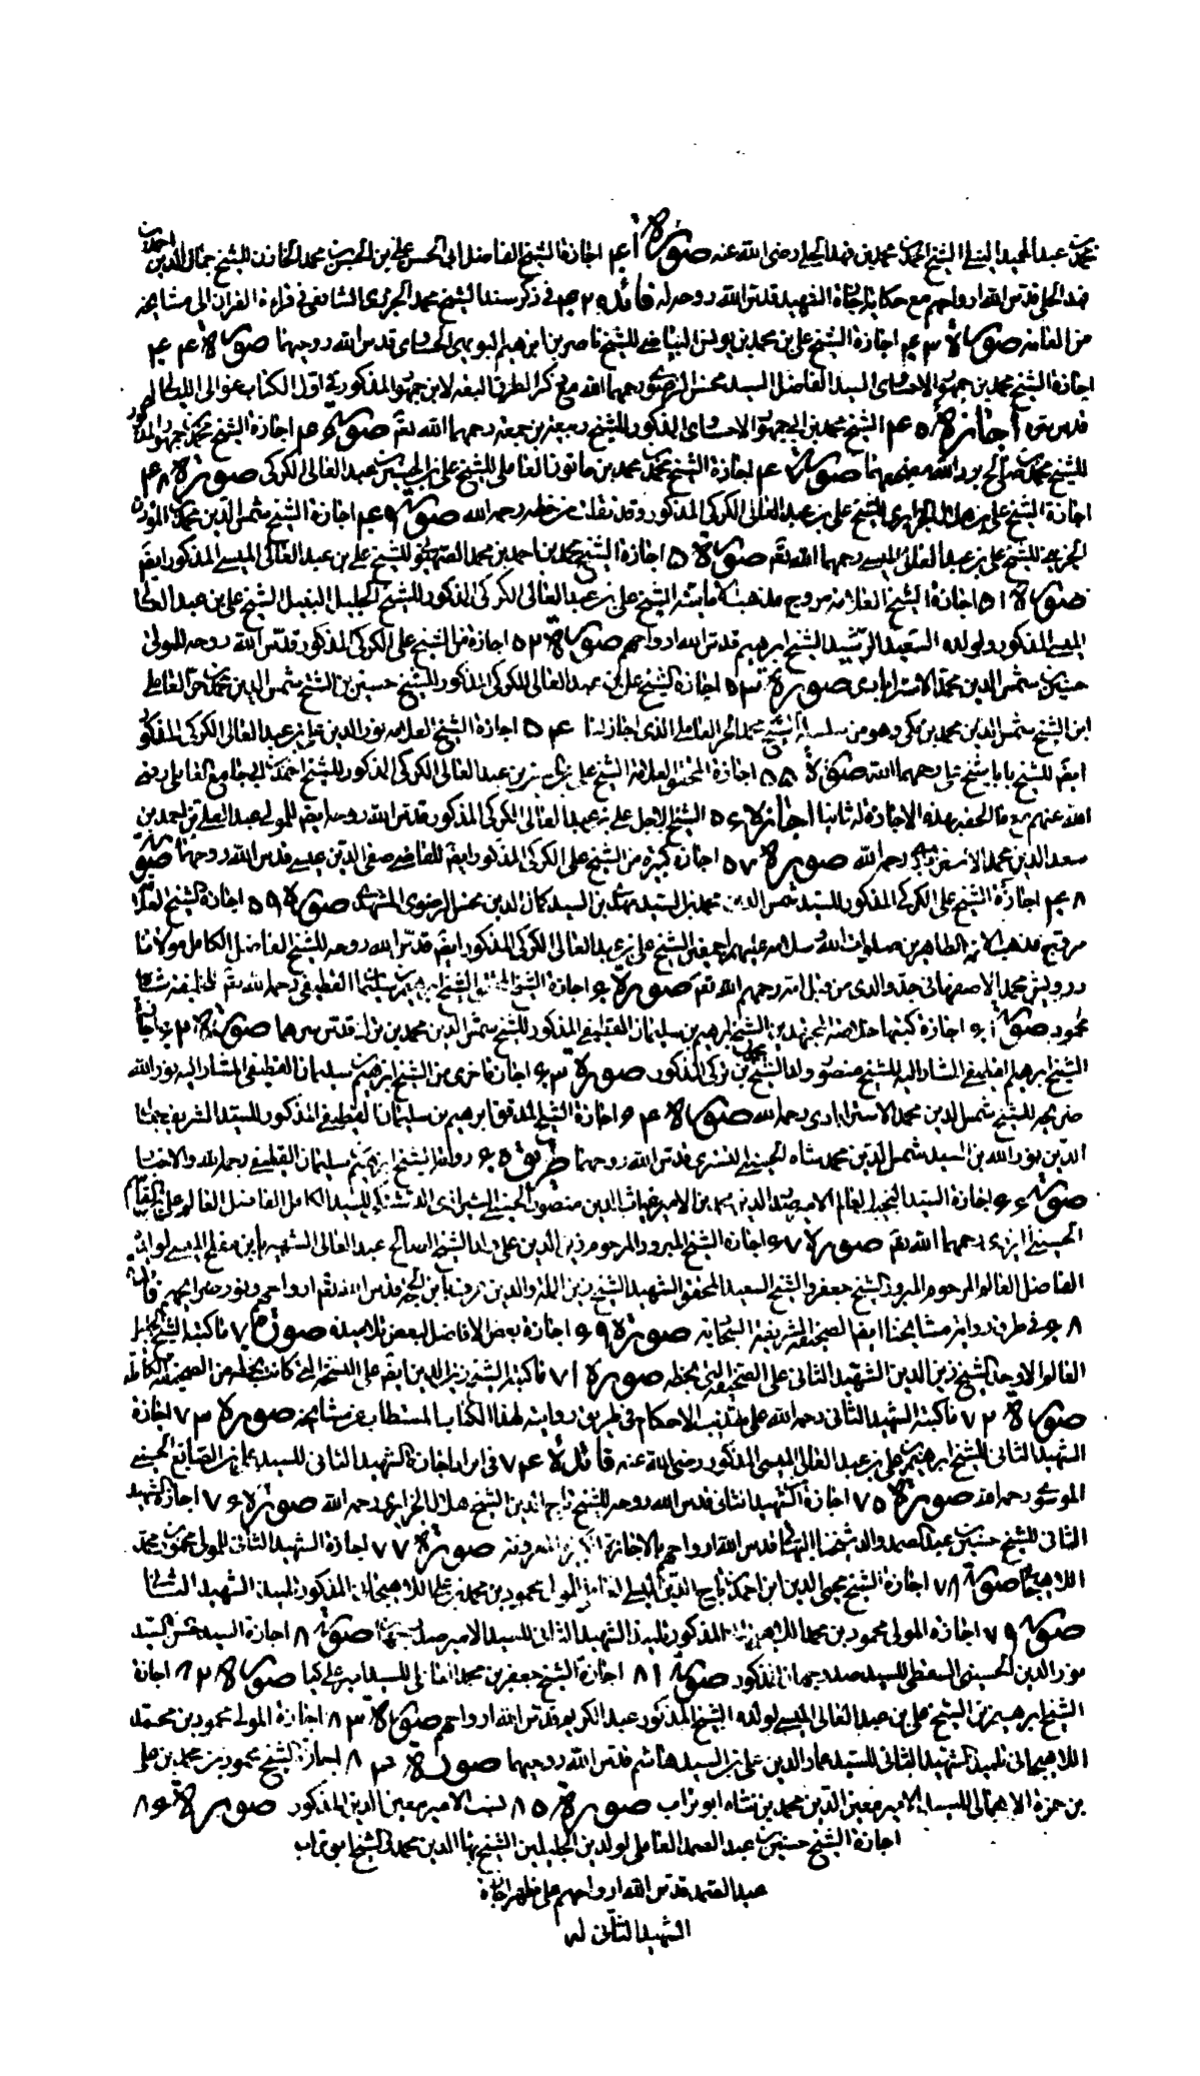 بن عبد الحميد النيلي الشيخ احمد بن محمد بن فهد الحلي رضى الله عنه صورة ٤١ اجازة الشيخ الفاضل ابى الحسن على بن الحسن بن محمد الخازن للشيخ جمال الدين احمد بن
فهد الحلى قدس الله ارواحهم مع حكاية اجازة الشهيد قدس الله روحه له فائدة ٤٢ فى ذكر سند الشيخ محمد الجزرى الشافعى فى قراءة القران الى مشايخه
من العامة صورة ٤٣ اجازة الشيخ على بن محمد بن يونس البياضى للشيخ ناصر بن ابرهيم البويهى الحساوى قدس الله روحهما صورة ٤٤
اجازة الشيخ محمد بن جمهور الاحساوى السيد الفاضل السيد محسن الرضوى رحمهما الله مع ذكر الطرق السبعة لابن جمهور المذكور فى اول الكتاب عوالى اللئالى له
قدس سره اجازة ٤٥ الشيخ محمد بن ابى جمهور الاحساوى المذكور للشيخ ربيعة بن جمعة رحمهما الله تعم صورة ٤٦ اجازة الشيخ محمد بن جمهور المذكور
للشيخ محمد بن صالح برد الله مضجعهما صورة ٤٧ اجازة الشيخ محمد بن محمد بن خاتون العاملى للشيخ على بن الحسين بن عبد العالى الكركى صورة ٤٨
اجازة الشيخ على بن هلال الجزايرى للشيخ على بن عبد العالى الكركى المذكور وقد نقلت من خطه رحمه الله صورة ٤٩ اجازة الشيخ شمس الدين محمد بن المؤذن
الجزينى للشيخ على بن عبد العالى الميسى رحمهما الله تعم صورة ٥٠ اجازة الشيخ محمد بن احمد بن محمد الصهيونى للشيخ على بن عبد العالى الميسى المذكور ايضم
صورة ٥١ اجازة الشيخ العلامة مروج مذهب الائمة الشيخ على بن عبد العالى الكركى المذكور للشيخ الجليل النبيل الشيخ على بن عبد العالى
الميسى المذكور ولولده السعيد الرشيد الشيخ ابرهيم قدس الله ارواحهم صورة ٥٢ اجازة من الشيخ على الكركى المذكور قدس الله روحه للمولى
حسين بن شمس الدين محمد الاسترابادى صورة ٥٣ اجازة الشيخ على بن عبد العالى الكركى المذكور للشيخ حسين بن الشيخ شمس الدين محمد الحر العاملى
ابن الشيخ شمس الدين محمد بن مكى وهو من سلسلة الشيخ محمد الحر العاملى الذى اجاز لنا ٥٤ اجازة الشيخ العلامة نور الدين على بن عبد العالى الكركى المذكور
ايضم للشيخ بابا شيخ على رحمهما الله صورة ٥٥ اجازة المحقق العلامة الشيخ على بن الحسين بن عبد العالى الكركى المذكور للشيخ احمد بن ابى جامع العاملى رضى
الله عنهم مع الحقيه بهذه الاجازة له ثانيا اجازة ٥٦ الشيخ الاجل على بن عبد العالى الكركى المذكور قدس الله روحه ايضم للمولى عبد العلى بن احمد بن
سعد الدين محمد الاسترابادى رحمه الله صورة ٥٧ اجازة كبيرة من الشيخ على الكركى المذكور ايضم للقاضى صفى الدين عيسى قدس الله روحهما صورة
٥٨ اجازة الشيخ على الكركى المذكور للسيد شمس الدين محمد بن السيد كمال الدين محسن الرضوى المشهدى صورة ٥٩ اجازة الشيخ العلامة
مروج مذهب الائمة الطاهرين صلوات الله وسلامه عليهم اجمعين الشيخ على بن عبد العالى الكركى المذكور ايضم قدس الله روحه للشيخ الفاضل الكامل مولانا
درويش محمد الاصفهانى جد والدى من قبل امه رحمهم الله تعم صورة ٦٠ اجازة الشيخ ابرهيم بن سليمان القطيفى رحمه الله تعم للخليفة شاه
محمود صورة ٦١ اجازة كتبها خلاصة المجتهدين الشيخ ابرهيم بن سليمان القطيفى المذكور للشيخ شمس الدين محمد بن تركى قدس سرهما صورة ٦٢ اجازة
الشيخ ابرهيم القطيفى المشار اليه للشيخ منصور ولد الشيخ محمد بن تركى المذكور صورة ٦٣ اجازة اخرى من الشيخ ابرهيم بن سليمان القطيفى المشار اليه نور الله
ضريحه للشيخ شمس الدين محمد الاسترابادى رحمه الله صورة ٦٤ اجازة الشيخ المدقق ابرهيم بن سليمان القطيفى المذكور للسيد الشريف جمال
الدين بن نور الله بن السيد شمس الدين محمد شاه الحسينى التسترى قدس الله روحهما طريق ٦٥ رواية الشيخ ابرهيم بن سليمان القطيفى رحمه الله والاحسا
صورة ٦٦ اجازة السيد النجيب العالم الامير صدر الدين محمد بن الامير غياث الدين منصور الحسينى الشيرازى الدشتكى للسيد الكامل الفاضل العالم على بن القاسم
الحسينى اليزدى رحمهما الله تعم صورة ٦٧ اجازة الشيخ المبرور المرحوم زين الدين على ولد الشيخ الصالح عبد العالى الشهير بابن مفلح الميسى لولده
الفاضل العالم المرحوم المبرور الشيخ جعفر والشيخ السعيد المحقق الشهيد الشيخ زين الملة والدين عرف بابن الحجة قدس الله تعم ارواحهم ونور ضرايحهم فائدة
٦٨ فى طرق رواية مشايخنا ايضا الصحيفة الشريفة السجادية صورة ٦٩ اجازة بعض الافاضل لبعض تلاميذه صورة ٧٠ ما كتبه الشيخ الجليل
العالم الاوحد الشيخ زين الدين الشهيد الثانى على الصحيفة التى بخطه صورة ٧١ ما كتبه الشيخ زين الدين ايضم على النسخة التى كانت بخطه من الصحيفة الكاملة
صورة ٧٢ ما كتبه الشهيد الثانى رحمه الله على تهذيب الاحكام فى طريق روايته لهذا الكتاب المستطاب عن مشايخه صورة ٧٣ اجازة
الشهيد الثانى الشيخ ابرهيم بن على بن عبد العالى الميسى المذكور رضى الله عنه فائدة ٧٤ فى ايراد اجازة الشهيد الثانى للسيد على بن الصايغ الحسينى
الموسوى رحمه الله صورة ٧٥ اجازة الشهيد الثانى قدس الله روحه للشيخ تاج الدين بن الشيخ هلال الجزايرى رحمه الله صورة ٧٦ اجازة الشهيد
الثانى للشيخ حسين بن عبد الصمد والد شيخنا البهائى قدس الله ارواحهم بالاجازة الكبيرة المعروفة صورة ٧٧ اجازة الشهيد الثانى للمولى محمود بن محمد
اللاهيجانى صورة ٧٨ اجازة الشيخ محيى الدين ابن احمد بن تاج الدين الميسى العاملى للمولى محمود بن محمد بن على اللاهيجانى المذكور تلميذ الشهيد الثانى
صورة ٧٩ اجازة المولى محمود بن محمد اللاهيجانى المذكور تلميذ الشهيد الثانى للسيد الامير صدر جهان صورة ٨٠ اجازة السيد حسن السيد
نور الدين الحسينى السقطى للسيد صدر جهان المذكور صورة ٨١ اجازة الشيخ جعفر بن محمد العاملى للسيد امير على كيا صورة ٨٢ اجازة
الشيخ ابرهيم بن الشيخ على بن عبد العالى الميسى لولده الشيخ المذكور عبد الكريم قدس الله ارواحهم صورة ٨٣ اجازة المولى محمود بن محمد
اللاهيجانى تلميذ الشهيد الثانى للسيد عماد الدين على بن السيد هاشم قدس الله روحهما صورة ٨٤ اجازة الشيخ محمود بن محمد بن على
بن حمزة اللاهجانى للسيد الامير معين الدين محمد بن شاه ابو تراب صورة ٨٥ نسب الامير معين الدين المذكور صورة ٨٦
اجازة الشيخ حسين بن عبد الصمد العاملى لولديه الجليلين الشيخ بهاء الدين محمد والشيخ ابو تراب
عبد الصمد قدس الله ارواحهم على ظهر اجازة
الشهيد الثانى له